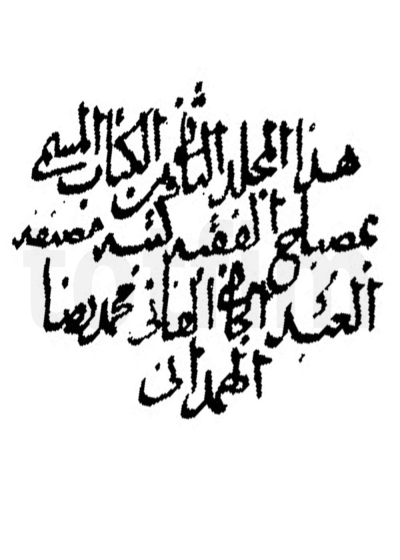 هذا المجلد الثاني من الكتاب المسمى
بمصباح الفقيه كتبه مصنفه
العبد الجاني الفاني محمد رضا
الهمداني